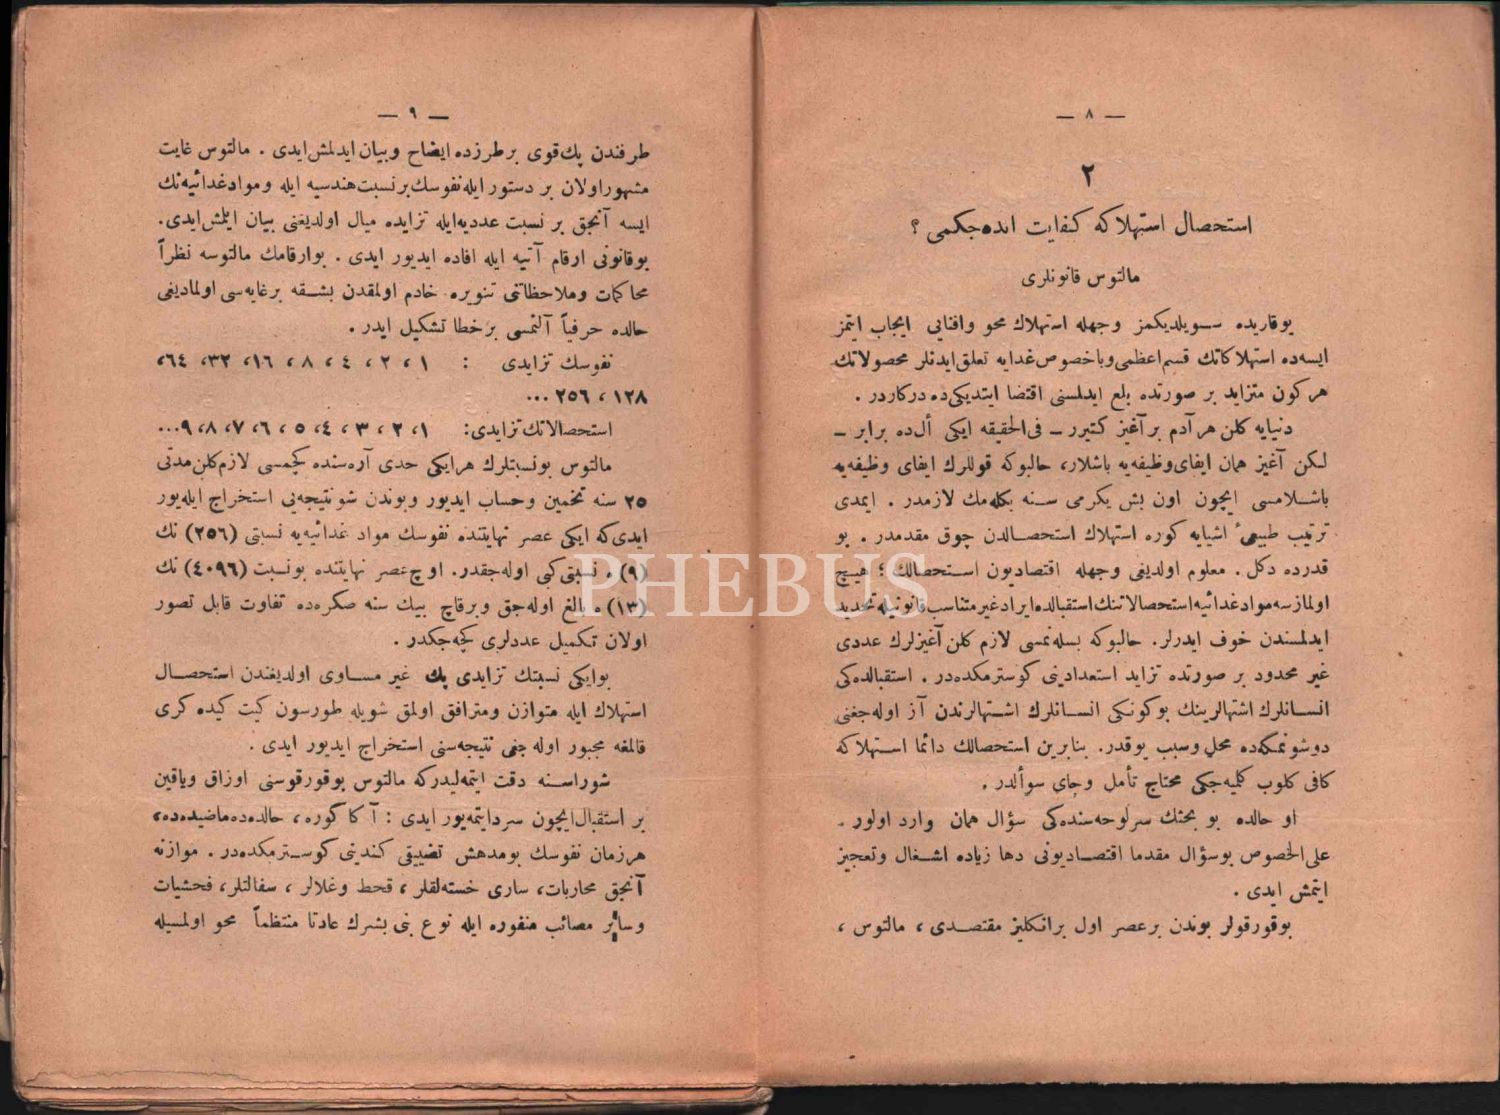 — ٨ —
٢
استحصال استهلاكه كفايت ايده‌جكمى ؟
مالتوس قانونلرى
يوقاريده سويلديكمز وجهله استهلاك محو وافنايى ايجاب ايتمز
ايسه‌ده استهلاكاتك قسم اعظمى وباخصوص غدايه تعلق ايدنلر محصولاتك
هركون متزايد بر صورتده بلع ايدلسنى اقتضا ايتديكى‌ده دركاردر .
دنيايه كلن هر آدم بر آغيز كتيرر ـ فى‌الحقيقه ايكى أل‌ده برابر ـ
لكن آغيز همان ايفاى وظيفه‌يه باشلار، حالبوكه قوللرك ايفاى وظيفه‌يه
باشلامسى ايچون اون بش يكرمى سنه بكله‌مك لازمدر . ايمدى
ترتيب طبيعئ اشيايه كوره استهلاك استحصالدن چوق مقدمدر . بو
قدرده دكل . معلوم اولديغى وجهله اقتصاديون استحصالك ؛ هيچ
اولمازسه مواد غدائيه استحصالاتنك استقبالده ايراد غير متناسب قانونيله تحديد
ايدلمسندن خوف ايدرلر. حالبوكه بسله‌نمسى لازم كلن آغيزلرك عددى
غير محدود بر صورتده تزايد استعدادينى كوسترمكده‌در . استقبالده‌كى
انسانلرك اشتهالرينك بوكونكى انسانلرك اشتهالرندن آز اوله‌جغنى
دوشونمكه‌ده محل وسبب يوقدر. بنابرين استحصالك دائما استهلاكه
كافى كلوب كلميه‌جكى محتاج تأمل وجاى سوألدر .
او حالده بو بحثك سرلوحه‌سنده‌كى سؤال همان وارد اولور .
على‌الخصوص بوسؤال مقدما اقتصاديونى دها زياده اشغال وتعجيز
ايتمش ايدى .
بوقورقولر بوندن بر عصر اول بر انكليز مقتصدى ، مالتوس ،
— ٩ —
طرفندن پك قوى بر طرزده ايضاح وبيان ايدلمش ايدى . مالتوس غايت
مشهور اولان بر دستور ايله نفوسك بر نسبت هندسيه ايله ومواد غدائيه‌نك
ايسه آنجق بر نسبت عدديه‌ايله تزايده ميال اولديغنى بيان ايلمش ايدى.
بوقانونى ارقام آتيه ايله افاده ايديور ايدى . بوارقامك مالتوسه نظراً
محاكمات وملاحظاتنى تنويره خادم اولمقدن بشقه بر غايه‌سى اولماديغى
حالده حرفياً آلنمسى بر خطا تشكيل ايدر .
نفوسك تزايدى : ١ ، ٢ ، ٤ ، ٨ ، ١٦، ٣٢، ٦٤،
١٢٨ ، ٢٥٦ ...
استحصالاتك تزايدى: ١، ٢ ، ٣ ، ٤، ٥ ، ٦، ٧، ٨، ٩...
مالتوس بونسبتلرك هرايكى حدى آره‌سنده كچمسى لازم كلن مدتى
٢٥ سنه تخمين وحساب ايديور وبوندن شو نتيجه‌يى استخراج ايله‌يور
ايدى‌كه ايكى عصر نهايتنده نفوسك مواد غدائيه‌يه نسبتى (٢٥٦) نك
(٩) ه نسبتى كبى اوله‌جقدر. اوچ عصر نهايتنده بونسبت (٤٠٩٦) نك
(١٣) ه بالغ اوله‌جق وبرقاچ بيك سنه صكره‌ده تفاوت قابل تصور
اولان تكميل عددلرى كچه‌جكدر .
بوايكى نسبتك تزايدى پك غير مساوى اولديغندن استحصال
استهلاك ايله متوازن ومترافق اولمق شويله طورسون كيت كيده كرى
قالمغه مجبور اوله جغى نتيجه‌سنى استخراج ايديور ايدى .
شوراسنه دقت ايتمه‌ليدركه مالتوس بوقورقوسنى اوزاق وياقين
بر استقبال ايچون سرد ايتمه‌يور ايدى : آكا كوره ، حالده‌ده ماضيده‌ده،
هر زمان نفوسك بومدهش تضييقى كندينى كوسترمكده‌در . موازنه
آنجق محاربات، سارى خسته‌لقلر ، قحط وغلالر ، سفالتلر، فحشيات
وسائر مصائب منفوره ايله نوع بنى بشرك عادتا منتظماً محو اولمسيله
PHEBUS